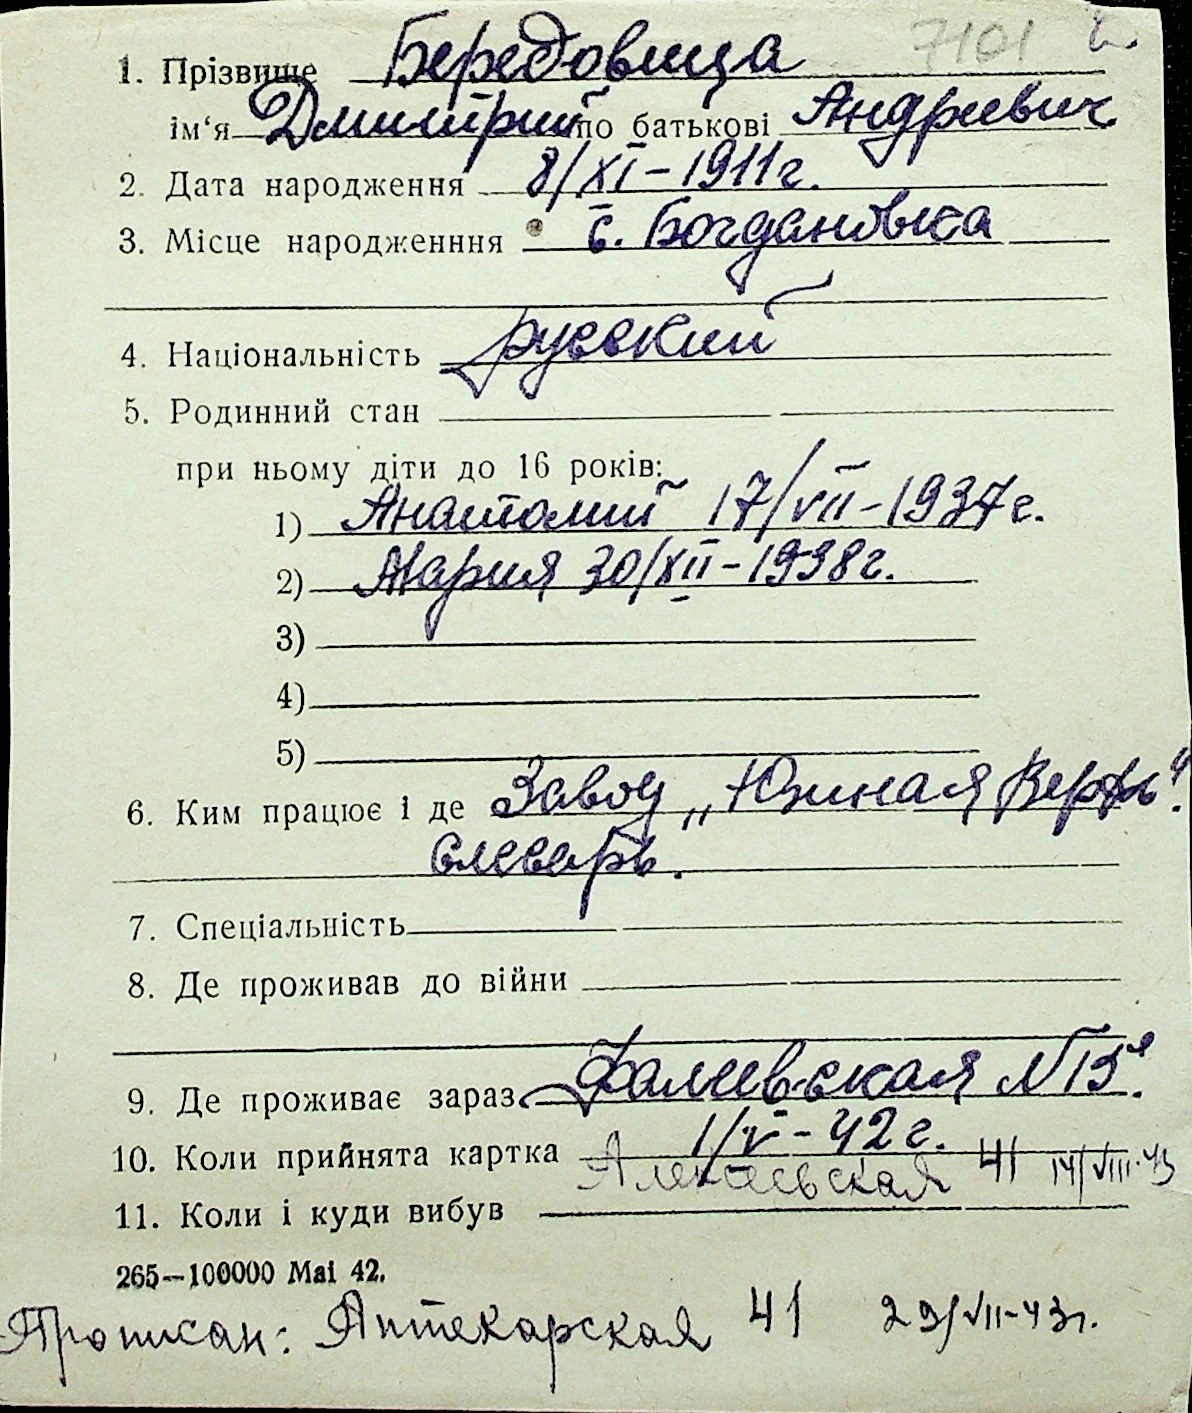 7101
1. Прізвище Бередовица
ім'я Дмитрий по батькові Андреевич
2. Дата народження 8/XI-1911г.
3. Місце народженння с. Богдановка
4. Національність русский
5. Родинний стан
при ньому діти до 16 років:
1) Анатолий 17/VII-1937г.
2) Мария 30/XII-1938г.
3)
4)
5)
6. Ким працює і де Завод „Южная Верфь".
слесарь.
7. Спеціальність
8. Де проживав до війни
9. Де проживає зараз Фалеевская №13
10. Коли прийнята картка 1/V-42г.
Алексеевская 41 14/VIII-43
11. Коли і куди вибув
265—100000 Mai 42.
Прописан: Аптекарская 41 29/VII-43г.